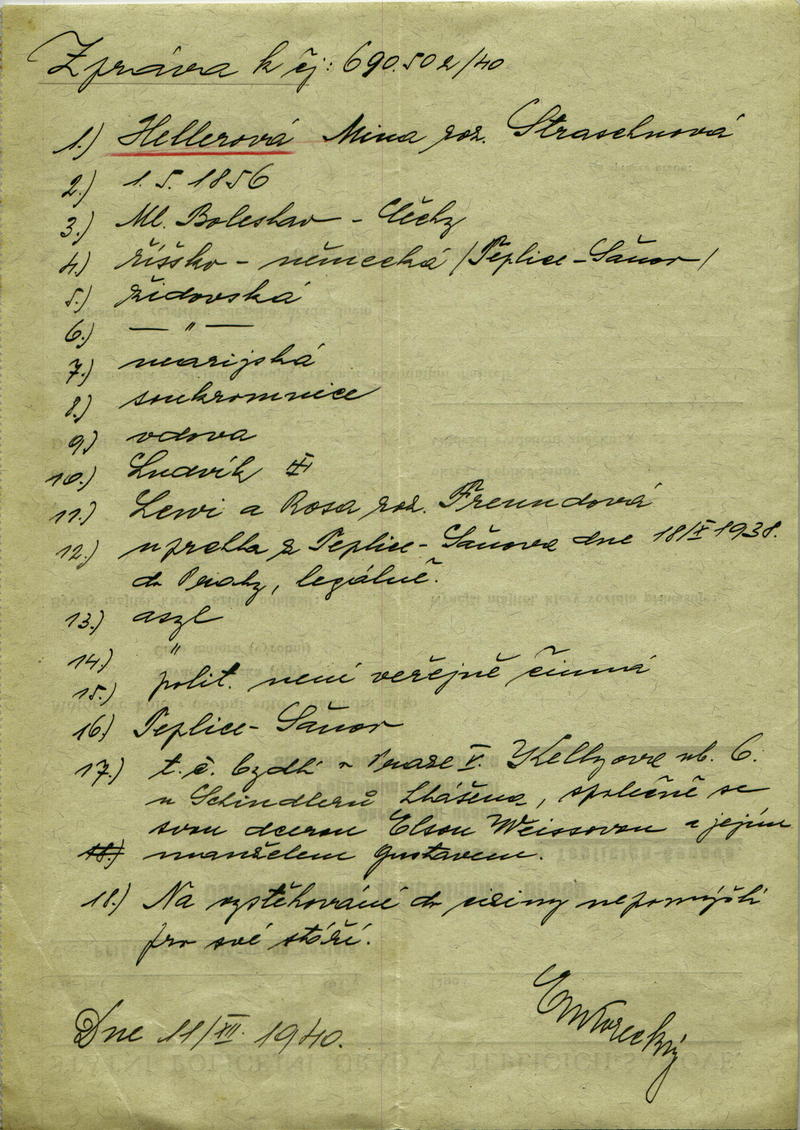 Zpráva k čj: 690.502/40
1.) Hellerová Mina roz. Straschnová
2.) 1. 5. 1856
3.) Ml. Boleslav - Čechy
4.) říšsko - německá /Teplice-Šanov/
5.) židovská
6.) — " —
7.) nearijská
8.) soukromnice
9.) vdova
10.) Ludvík
11.) Lewi a Rosa roz. Freundová
12.) uprchla z Teplice-Šanova dne 18/X 1938.
do Prahy, legálně.
13.) azyl
14.) "
15.) polit. není veřejně činná
16.) Teplice-Šanov
17.) t. č. bydlí v Praze V. Kellyova ul. 6.
u Schindlerů hlášena, společně se
svou dcerou Elsou Weissovou a jejím
18.) manželem Gustavem.
18.) Na vystěhování do ciziny nepomýšlí
pro své stáří.
Dne 11/XII. 1940.